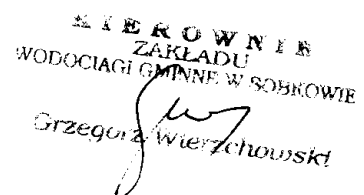 KIEROWNIK
ZAKŁADU
WODOCIĄGI GMINNE W SOBKOWIE
Grzegorz Wierzchowski